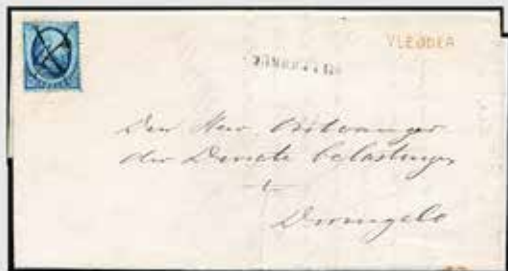 VLEDDER
Den Heer Ontvanger
der Directe belastingen
te
Dwingelo